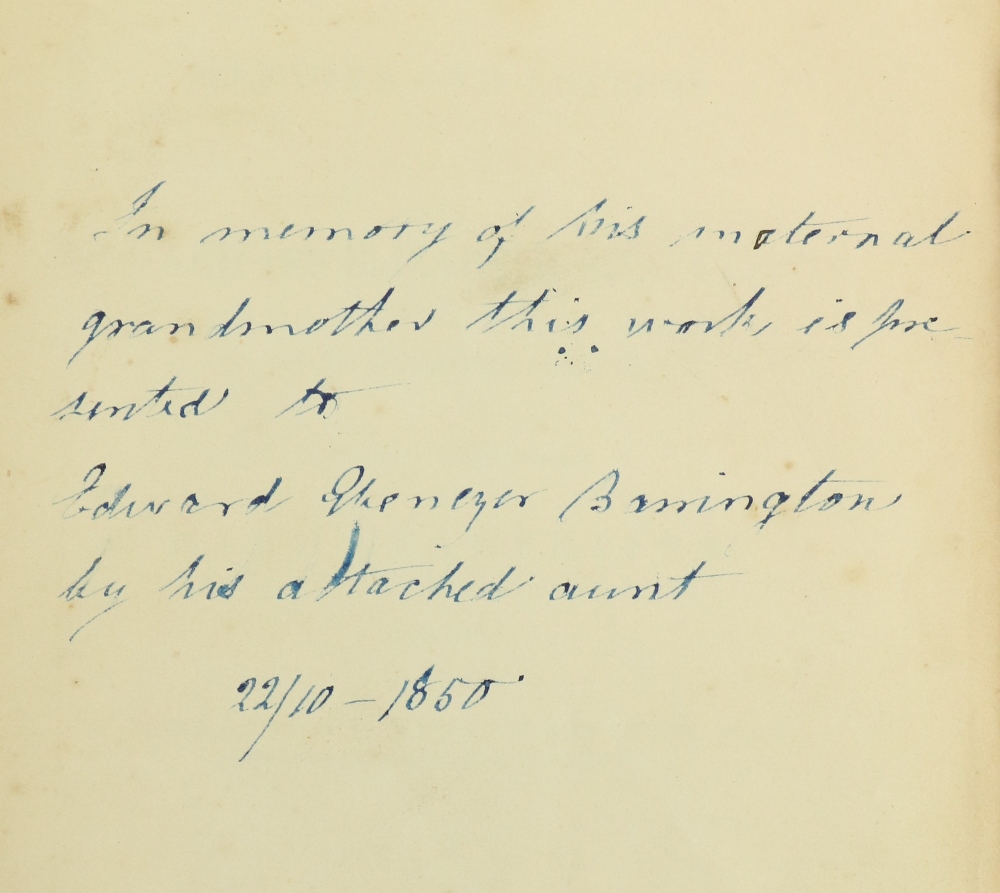 In memory of his maternal
grandmother this work is pre-
sented to
Edward Ebenezer Barrington
by his attached aunt
22/10-1850